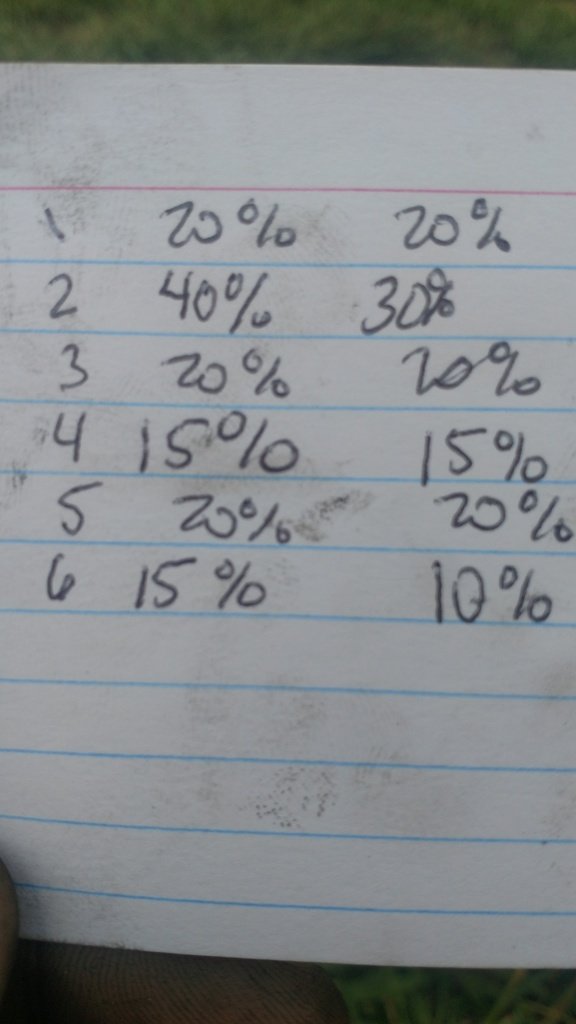 1 20% 20%
2 40% 30%
3 20% 20%
4 15% 15%
5 20% 20%
6 15% 10%